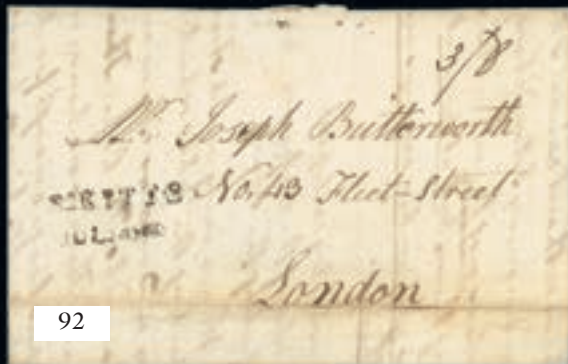 3/8
Mr. Joseph Butterworth
No. 43 Fleet-Street
London
92